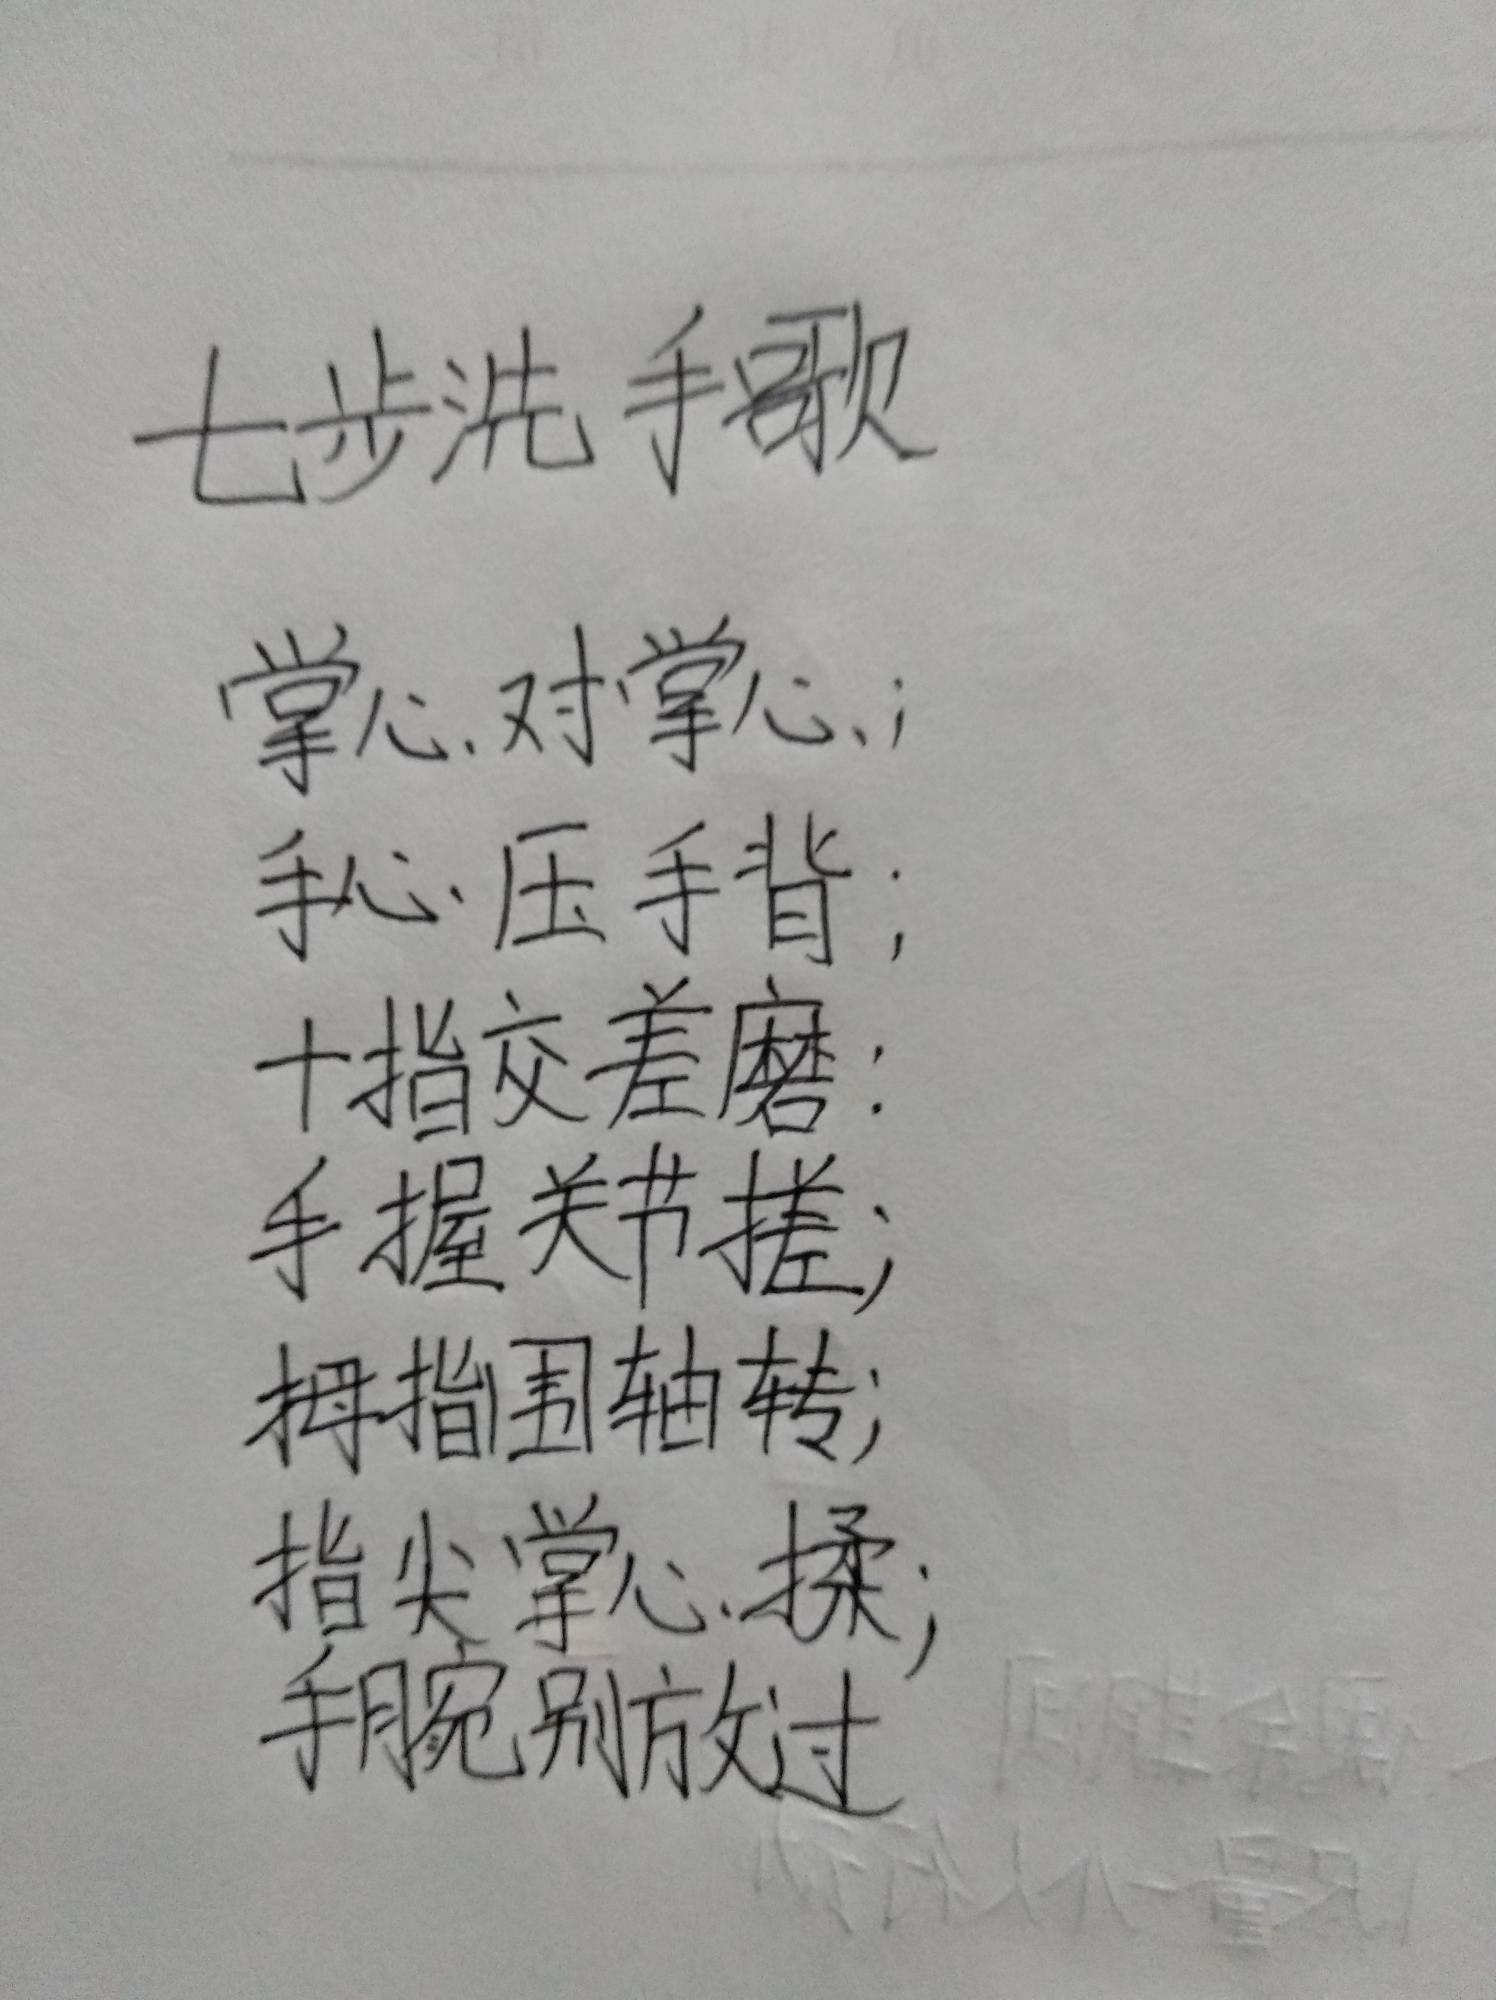 七步洗手歌
掌心对掌心；
手心压手背；
十指交差磨：
手握关节搓；
拇指围轴转；
指尖掌心揉；
手腕别放过